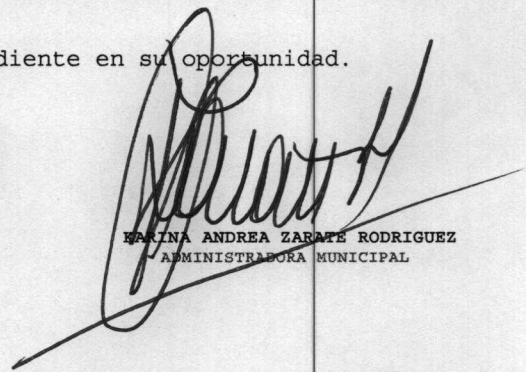 diente en su oportunidad.
KARINA ANDREA ZARATE RODRIGUEZ
ADMINISTRADORA MUNICIPAL